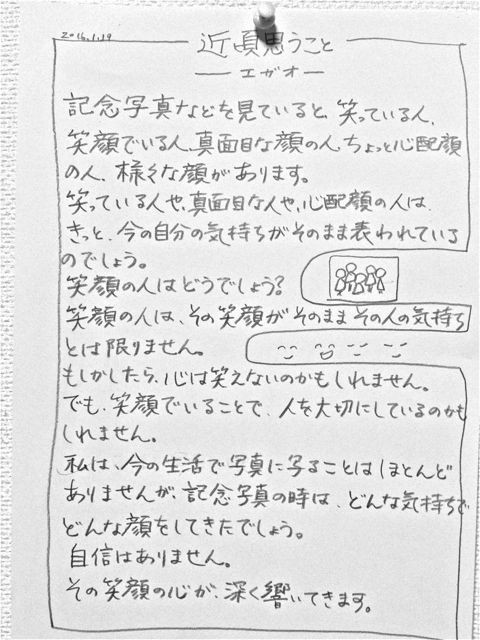 2016.1.19
近頃思うこと
ーエガオー
記念写真などを見ていると、笑っている人、
笑顔でいる人、真面目な顔の人、ちょっと心配顔
の人、様々な顔があります。
笑っている人や、真面目な人や、心配顔の人は、
きっと、今の自分の気持ちがそのまま表われている
のでしょう。
笑顔の人はどうでしょう?
笑顔の人は、その笑顔がそのままその人の気持ち
とは限りません。
もしかしたら、心は笑えないのかもしれません。
でも、笑顔でいることで、人を大切にしているのかも
しれません。
私は、今の生活で写真に写ることはほとんど
ありませんが、記念写真の時は、どんな気持ちで
どんな顔をしてきたでしょう。
自信はありません。
その笑顔の心が、深く響いてきます。